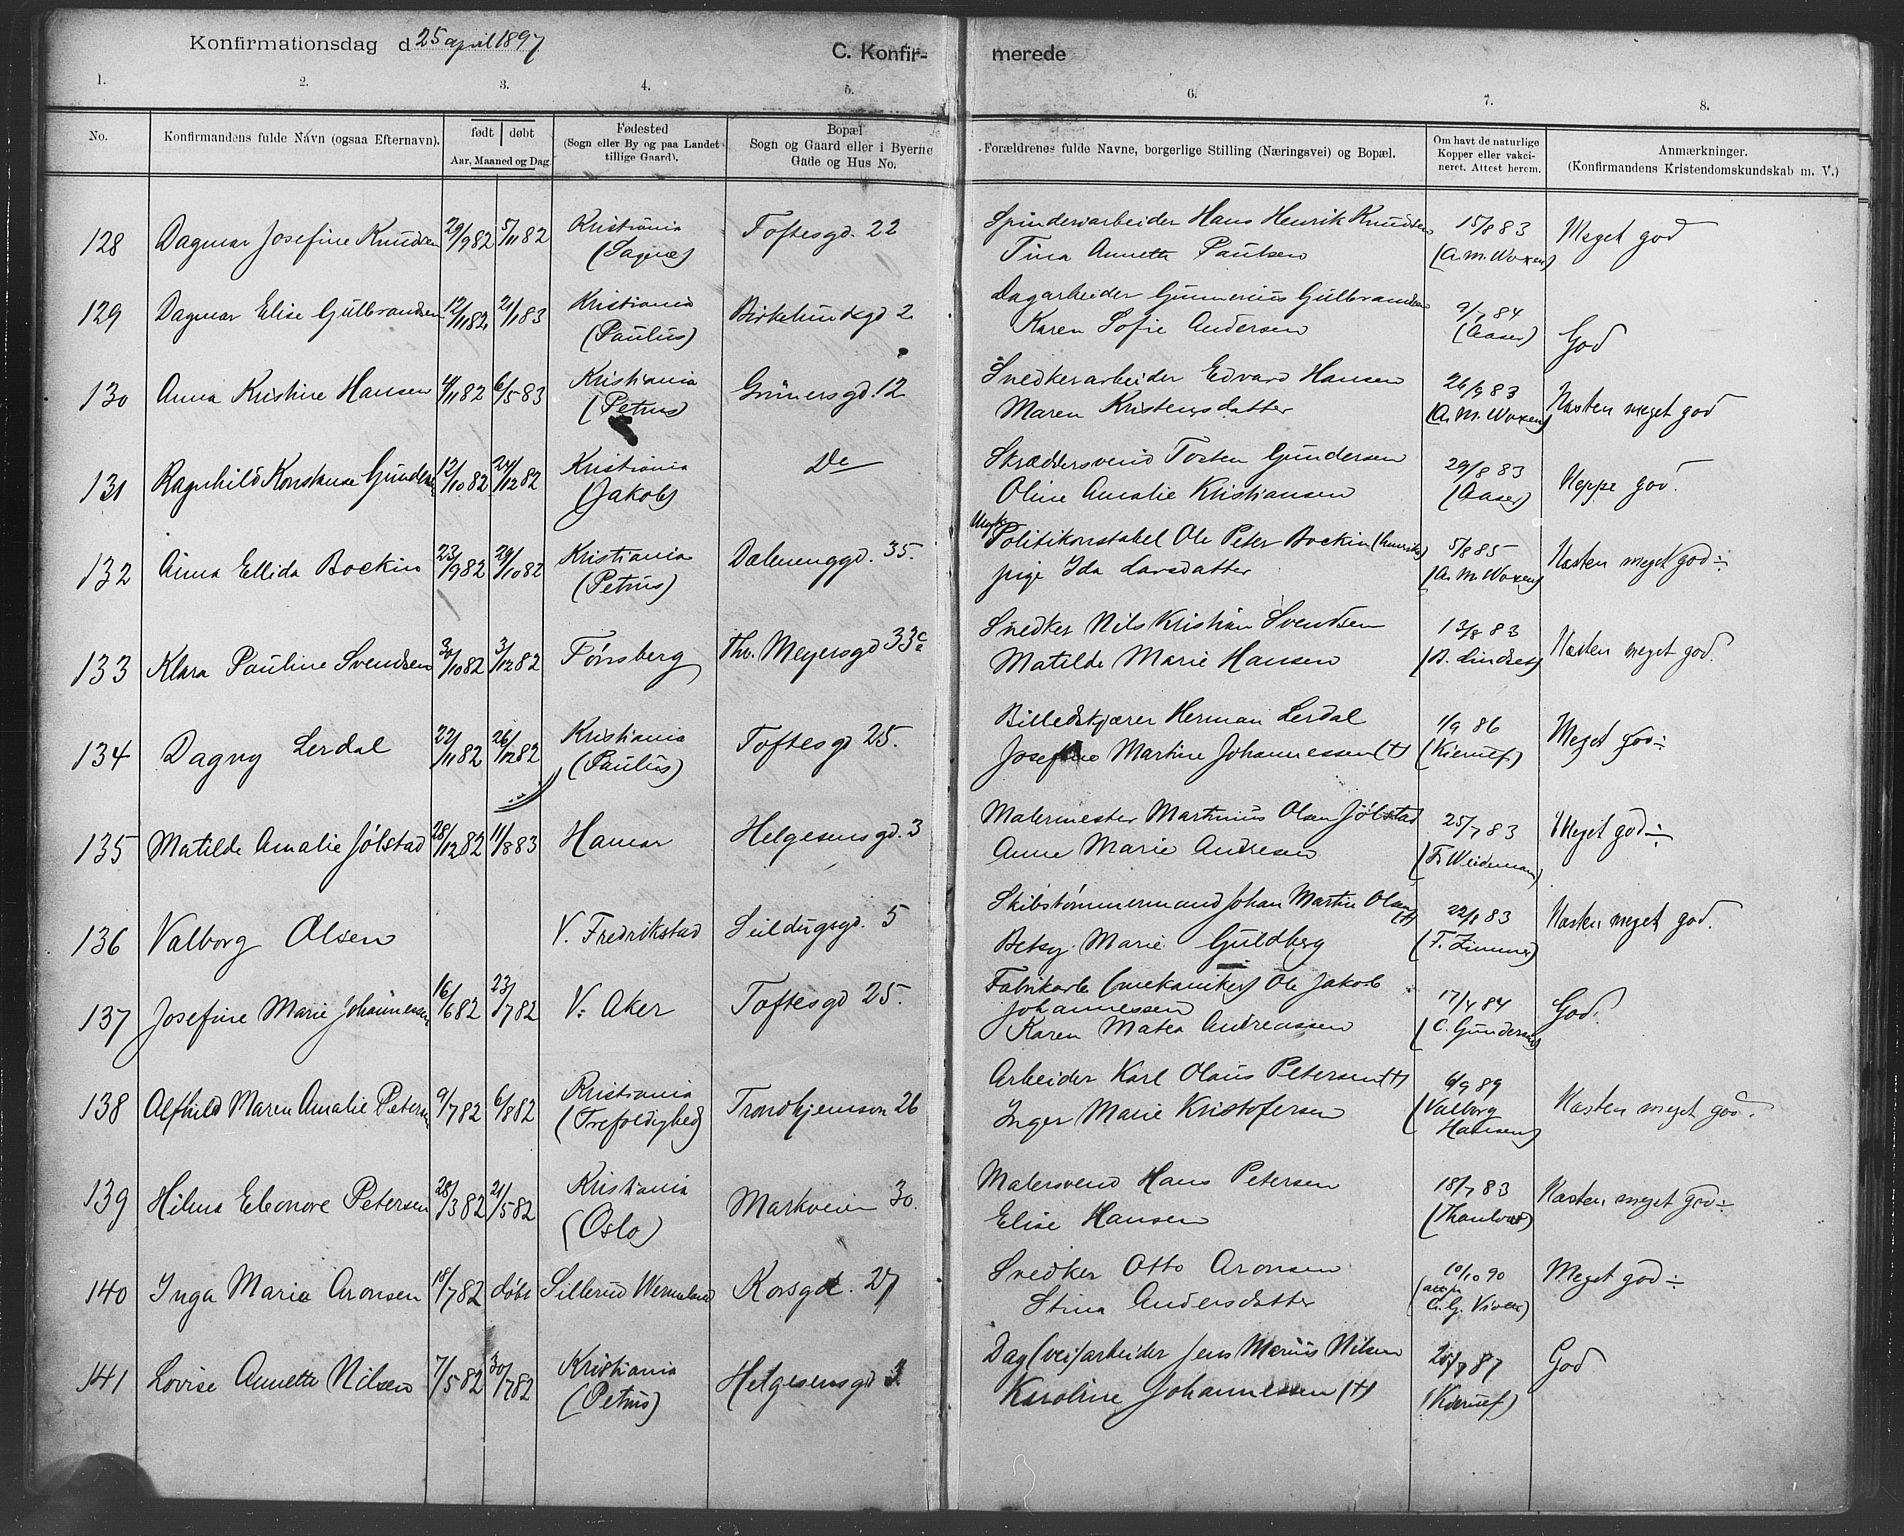 Konfirmationsdag d 25 april 1897
C. Konfir- merede
1. 2. 3. 4. 5. 6. 7. 8.
No.
Konfirmandens fulde Navn (ogsaa Efternavn).
født døbt
Aar, Maaned og Dag
Fødested
(Sogn eller By og paa Landet
tillige Gaard).
Bopæl
Sogn og Gaard eller i Byerne
Gade og Hus No.
Forældrenes fulde Navne, borgerlige Stilling (Næringsvei) og Bopæl.
Om havt de naturlige
Kopper eller vakci-
neret. Attest herom.
Anmærkninger.
(Konfirmandens Kristendomskundskab m. V.)
128 Dagmar Josefine Knudsen 29/9 82 5/11 82 Kristiania Toftesgd. 22 Spinderiarbeider Hans Henrik Knudsen 15/8 83 Meget god
(Sagene) Tina Annette Paulsen (A. M. Woxen)
129 Dagmar Elise Gulbrandsen 12/11 82 21/1 83 Kristiania Birkelundsgd 2 Dagarbeider Gunnerius Gulbrandsen 2/7 84 God
(Paulus) Karen Sofie Andersen (Aaser)
130 Anna Kristine Hansen 4/11 82 6/5 83 Kristiania Grünersgd. 12 Snedkerarbeider Edvard Hansen 26/9 83 Næsten meget god
(Petrus) Maren Kristensdatter (A. M. Woxen)
131 Ragnhild Konstanse Gundersen 12/10 82 24/12 82 Kristiania Do Skræddersvend Tosten Gundersen 29/8 83 Neppe god.
(Jakob) Oline Amalie Kristiansen (Aaser)
132 Anna Ellida Bockin 23/9 82 29/10 82 Kristiania Dælenenggd. 35. Ungk. Politikonstabel Ole Peter Bockin 5/8 85 Næsten meget god ÷
(Petrus) pige Ida Larsdatter (A. M. Woxen)
133 Klara Pauline Svendsen 30/10 82 3/12 82 Tønsberg Thv. Meyersgd 33c Snedker Nils Kristian Svendsen 13/8 83 Næsten meget god.
Matilde Marie Hansen
134 Dagny Lerdal 22/11 82 26/12 82 Kristiania Toftesgd 25. Billedskjærer Herman Lerdal 1/9 86 Meget god ÷
(Paulus) Josefine Martine Johannessen (†) (Kierulf)
135 Matilde Amalie Jølstad 28/12 82 11/8 83 Hamar Helgesensgd. 3 Malermester Martinius Olsen Jølstad 25/7 83 Meget god ÷
Anne Marie Andresen (Fr. Weideman)
136 Valborg Olsen V. Fredrikstad Seildugsgd. 5 Skibstømmermand Johan Martin Olsen (†) 22/8 83 Næsten meget god.
Betsy Marie Guldberg (F. Zimmer)
137 Josefine Marie Johannessen 16/6 82 23/7 82 V. Aker Toftesgd 25. Fabrikarb (mekaniker) Ole Jakob 17/4 84 God.
Johannessen
Karen Matea Andreassen (C. Gundersen)
138 Alfhild Maren Amalie Petersen 9/7 82 6/8 82 Kristiania Trondhjemsvn 26 Arbeider Karl Olaus Petersen (†) 6/9 89 Næsten meget god.
(Trefoldighed) Inger Marie Kristofersen (Valborg
Hansen)
139 Hilma Eleonore Petersen 28/3 82 21/5 82 Kristiania Markveien 30. Malersvend Hans Petersen 18/7 83 Næsten meget god ÷
(Oslo) Elise Hansen (Thaulow)
140 Inga Marie Aronsen 18/7 82 døbt Sillerud Wermland Korsgd. 27 Snedker Otto Aronsen 10/10 90 Meget god ÷
Stina Andersdatter
141 Lovise Annette Nilsen 7/5 82 30/7 82 Kristiania Helgesensgd 3. Dag (vei)arbeider Jens Marius Nilsen God
(Petrus) Karoline Johannessen (†) (Kierulf)